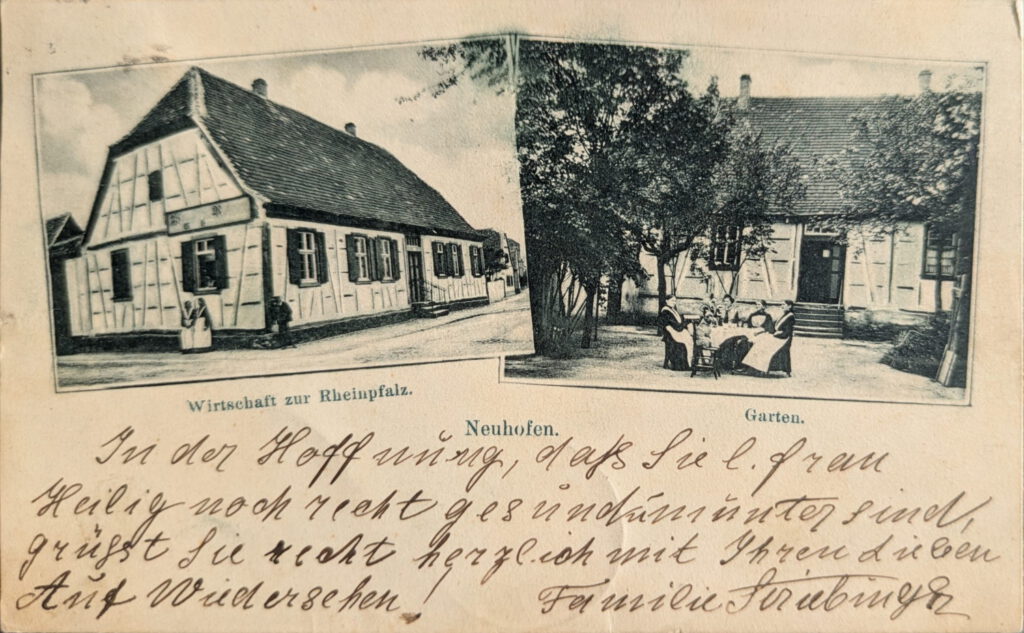 Wirtschaft zur Rheinpfalz.
Garten.
Neuhofen.
In der Hoffnung, daß Sie l. Frau
Heilig noch recht gesund u. munter sind,
grüßst Sie recht herzlich mit Ihren Lieben
Auf Wiedersehen! Familie Striebinger